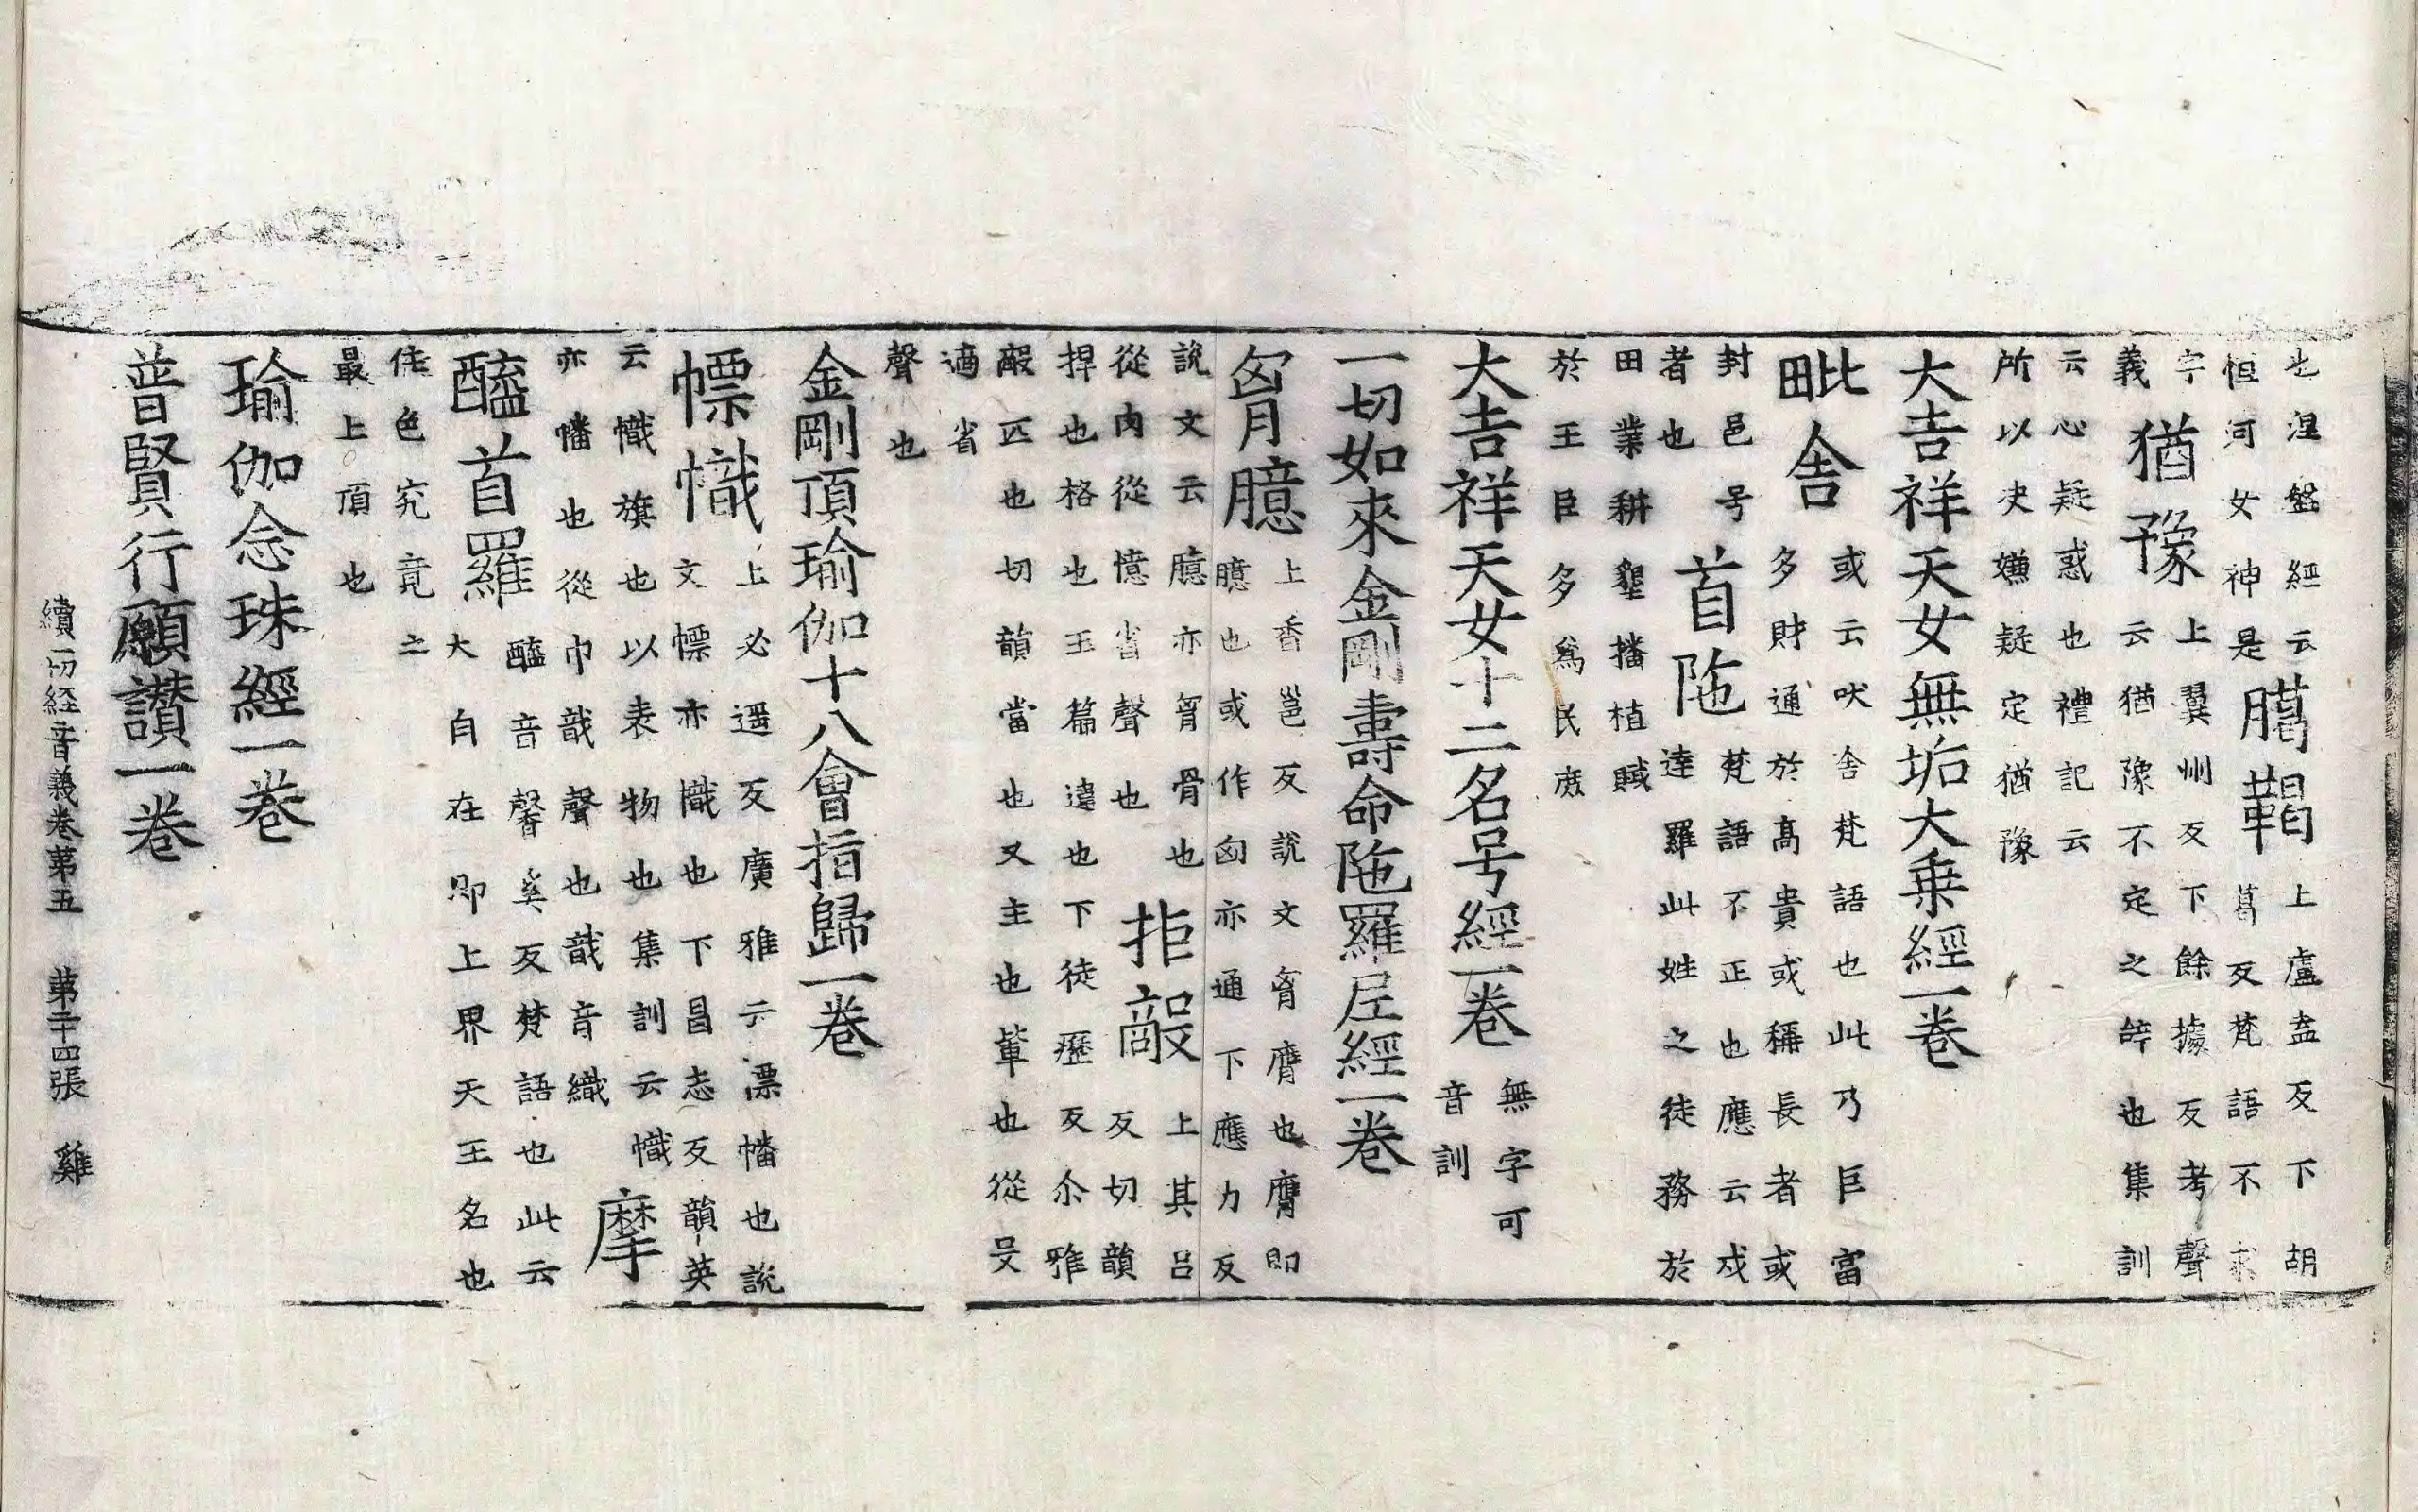 也涅盤經云臈鞨上盧盍反下胡
恒河女神是葛反梵語不求
字猶豫上翼州反下餘據反考聲
義云猶豫不定之辝也集訓
云心疑惑也禮記云
所以决嫌疑定猶豫
大吉祥天女無垢大乗經一巻
毗舍或云吠舍梵語也此乃巨富
多財通於髙貴或稱長者或
封邑号首陁梵語不正也應云戍
者也達羅此姓之徒務於
田業耕墾播植賦
於王臣多爲民庶
大吉祥天女十二名号經一巻無字可
音訓
一切如來金剛壽命陁羅尼經一巻
胷臆上香邕反說文胷膺也膺即
臆也或作匈亦通下應力反
說文云臆亦胷骨也拒敵上其呂
從肉從憶省聲也反切韻
捍也格也玉篇違也下徒歷反尒雅
敵匹也切韻當也又主也軰也從攴
適省
聲也
金剛頂瑜伽十八會指歸一巻
幖幟上必遥反廣雅云漂幡也說
文幖亦幟也下昌志反韻英
云幟旗也以表物也集訓云幟
亦幡也從巾戠聲也戠音織摩
醯首羅醯音馨奚反梵語也此云
大自在即上界天王名也
住色究竟之
最上頂也
瑜伽念珠經一巻
普賢行願讃一巻
續一切経音義巻苐五 苐二十四張 雞